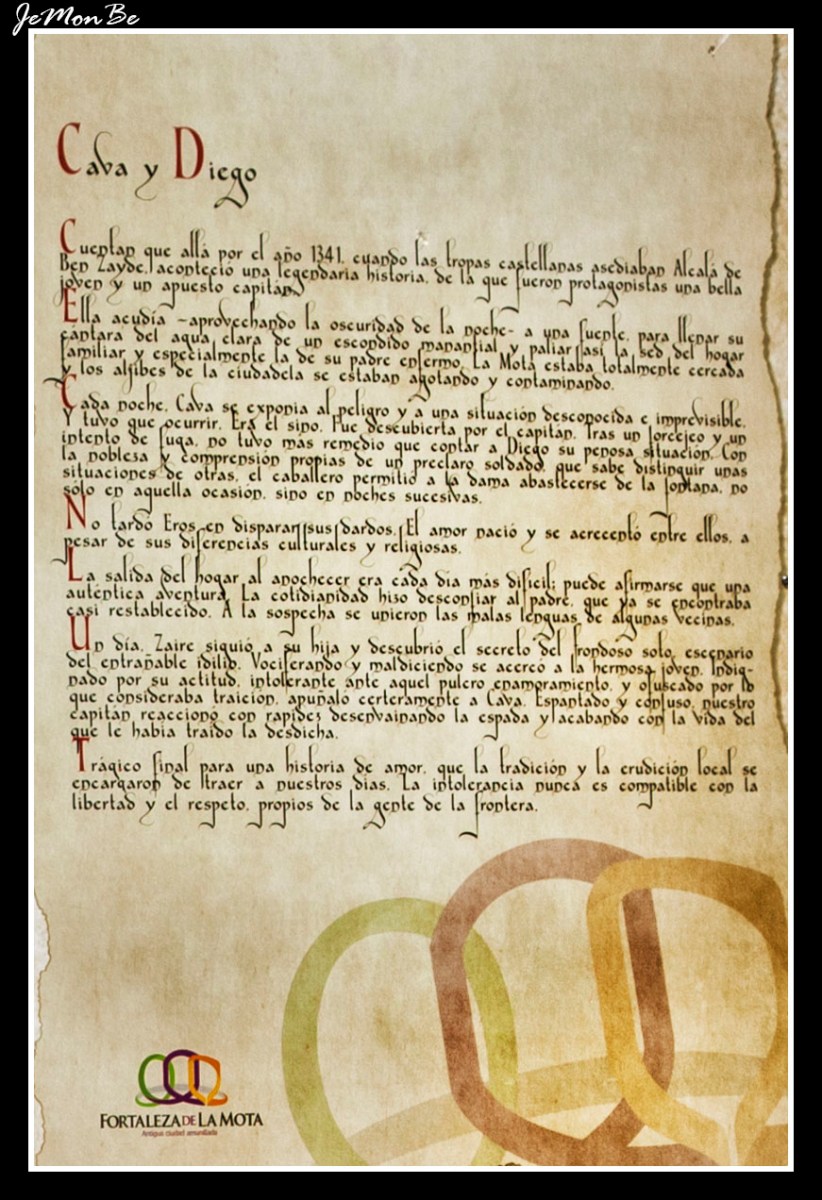 JeMonBe
Cava y Diego
Cuentan que allá por el año 1341, cuando las tropas castellanas asediaban Alcalá de
Ben Zayde, aconteció una legendaria historia, de la que fueron protagonistas una bella
joven y un apuesto capitán.
Ella acudía -aprovechando la oscuridad de la noche- a una fuente, para llenar su
cántara del agua clara de un escondido manantial y paliar así la sed del hogar
familiar y especialmente la de su padre enfermo. La Mota estaba totalmente cercada
y los aljibes de la ciudadela se estaban agotando y contaminando.
Cada noche, Cava se exponía al peligro y a una situación desconocida e imprevisible.
Y tuvo que ocurrir. Era el sino. Fue descubierta por el capitán. Tras un forcejeo y un
intento de fuga, no tuvo más remedio que contar a Diego su penosa situación. Con
la nobleza y comprensión propias de un preclaro soldado, que sabe distinguir unas
situaciones de otras, el caballero permitió a la dama abastecerse de la fontana, no
sólo en aquella ocasión, sino en noches sucesivas.
No tardó Eros en disparar sus dardos. El amor nació y se acrecentó entre ellos, a
pesar de sus diferencias culturales y religiosas.
La salida del hogar al anochecer era cada día más difícil; puede afirmarse que una
auténtica aventura. La cotidianidad hizo desconfiar al padre, que ya se encontraba
casi restablecido. A la sospecha se unieron las malas lenguas de algunas vecinas.
Un día, Zaire siguió a su hija y descubrió el secreto del frondoso soto, escenario
del entrañable idilio. Vociferando y maldiciendo se acercó a la hermosa joven. Indig-
nado por su actitud, intolerante ante aquel pulcro enamoramiento, y ofuscado por lo
que consideraba traición, apuñaló certeramente a Cava. Espantado y confuso, nuestro
capitán reaccionó con rapidez desenvainando la espada y acabando con la vida del
que le había traído la desdicha.
Trágico final para una historia de amor, que la tradición y la erudición local se
encargaron de traer a nuestros días. La intolerancia nunca es compatible con la
libertad y el respeto, propios de la gente de la frontera.
FORTALEZA DE LA MOTA
Antigua ciudad amurallada